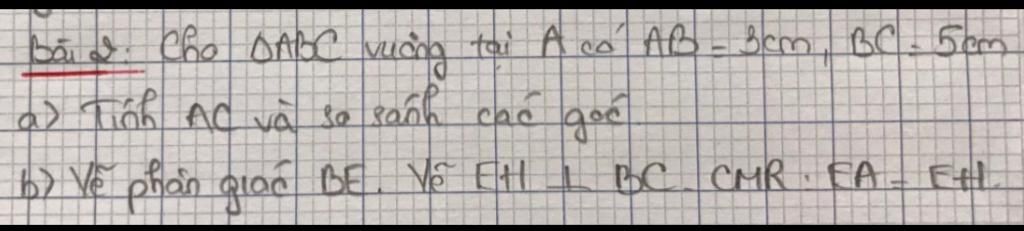 Bài 2: Cho ΔABC vuông tại A có AB = 3cm, BC = 5cm
a) Tính AC và so sánh các góc.
b) Vẽ phân giác BE. Vẽ EH ⊥ BC. CMR: EA = EH.